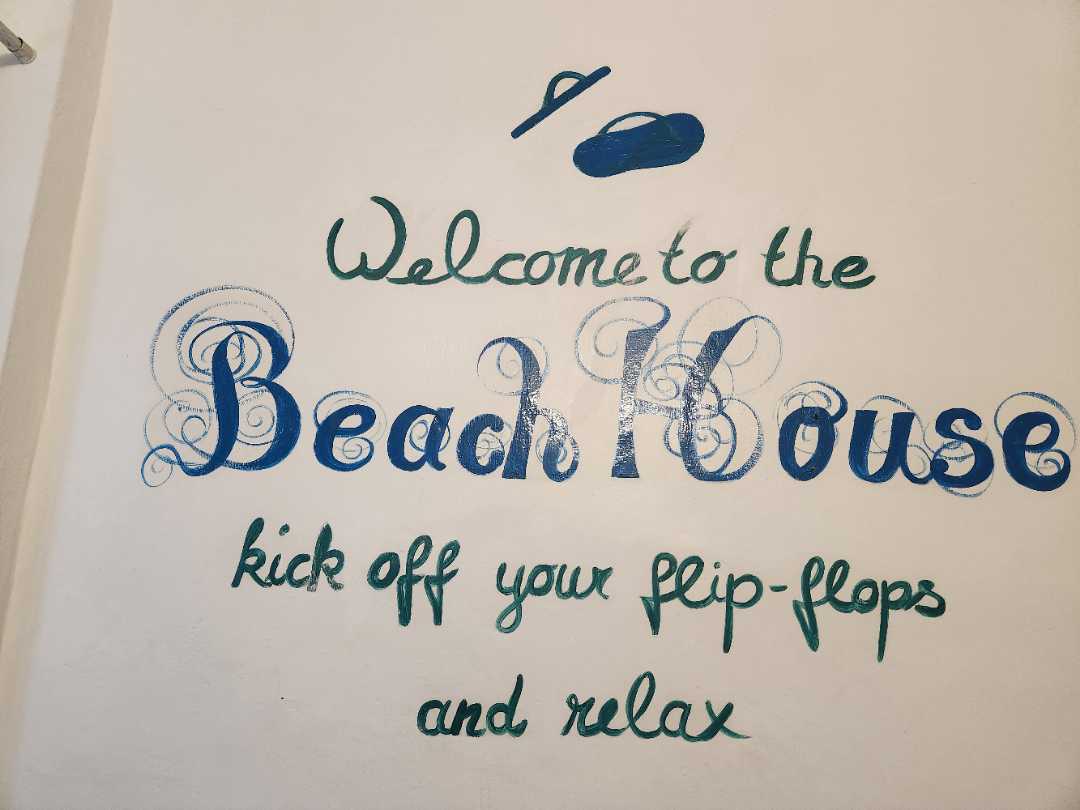 Welcome to the
Beach House
kick off your flip-flops
and relax